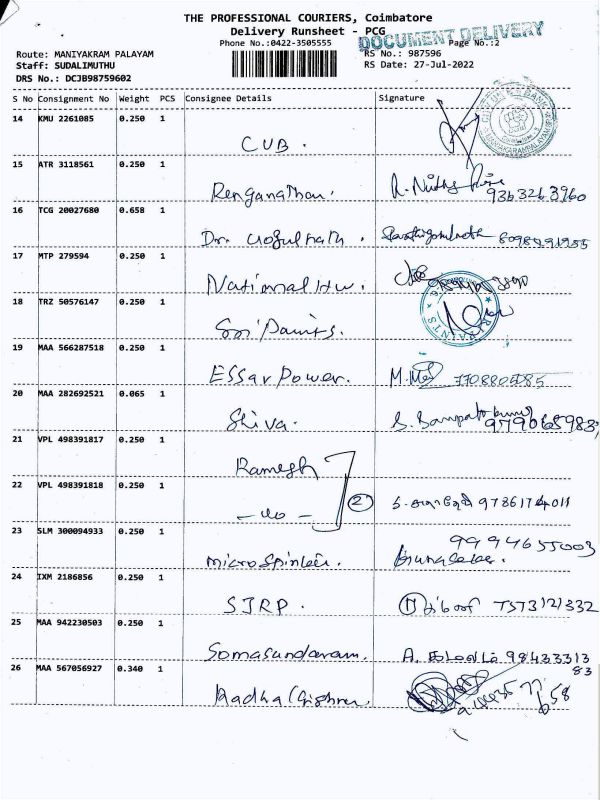 THE PROFESSIONAL COURIERS, Coimbatore
Delivery Runsheet - PCG
DOCUMENT DELIVERY
Phone No.:0422-3505555
Page No.:2
Route: MANIYAKRAM PALAYAM
RS No.: 987596
Staff: SUDALIMUTHU
RS Date: 27-Jul-2022
DRS No.: DCJB98759602
S No Consignment No Weight PCS Consignee Details Signature
14 KMU 2261085 0.250 1
CUB.
15 ATR 3118561 0.250 1
Renganathan.
9363263960
16 TCG 20027680 0.658 1
Dr. Gogulnath.
17 MTP 279594 0.250 1
National Hw.
18 TRZ 50576147 0.250 1
Sri Paints.
19 MAA 566287518 0.250 1
Essar Power.
20 MAA 282692521 0.065 1
Shiva.
979065983
21 VPL 498391817 0.250 1
Ramesh
22 VPL 498391818 0.250 1
-do- 2
9786174011
23 SLM 300094933 0.250 1
9994655003
micro Spintech.
24 IXM 2186856 0.250 1
SJRP.
25 MAA 942230503 0.250 1
Somasundaram.
98433313
83
26 MAA 567056927 0.340 1
Radha Krishna